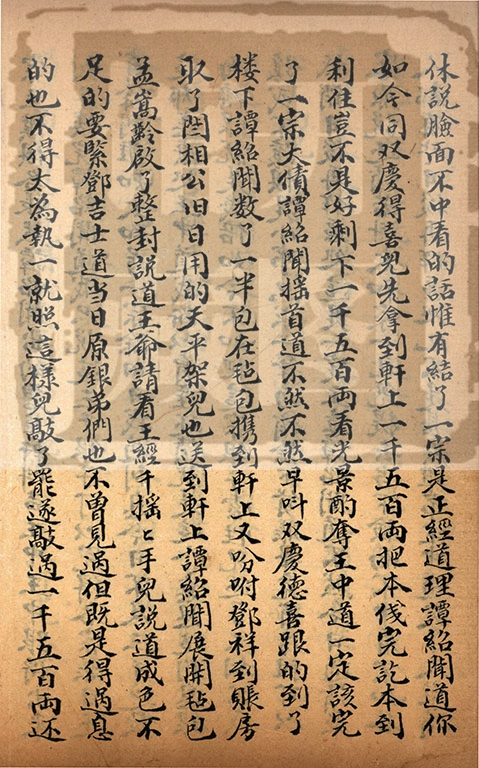 休説臉面不中看的話惟有結了一宗是正經道理譚紹聞道你
如今同双慶得喜兒先拿到軒上一千五百両把本伐完訖本到
利住豈不是好剩下一千五百両看光景酌奪王中道一定該完
了一宗大債譚紹聞揺首道不然不然早叫双慶德喜跟的到了
楼下譚紹聞数了一半包在毡包携到軒上又吩咐鄧祥到賬房
取了閆相公旧日用的天平架兒也送到軒上譚紹聞展開毡包
孟嵩齡啟了整封説道王爺請看王經千揺〻手兒説道成色不
足的要緊鄧吉士道当日原銀弟們也不曽見過但既是得過息
的也不得太為執一就照這樣兒敲了罷遂敲過一千五百両还